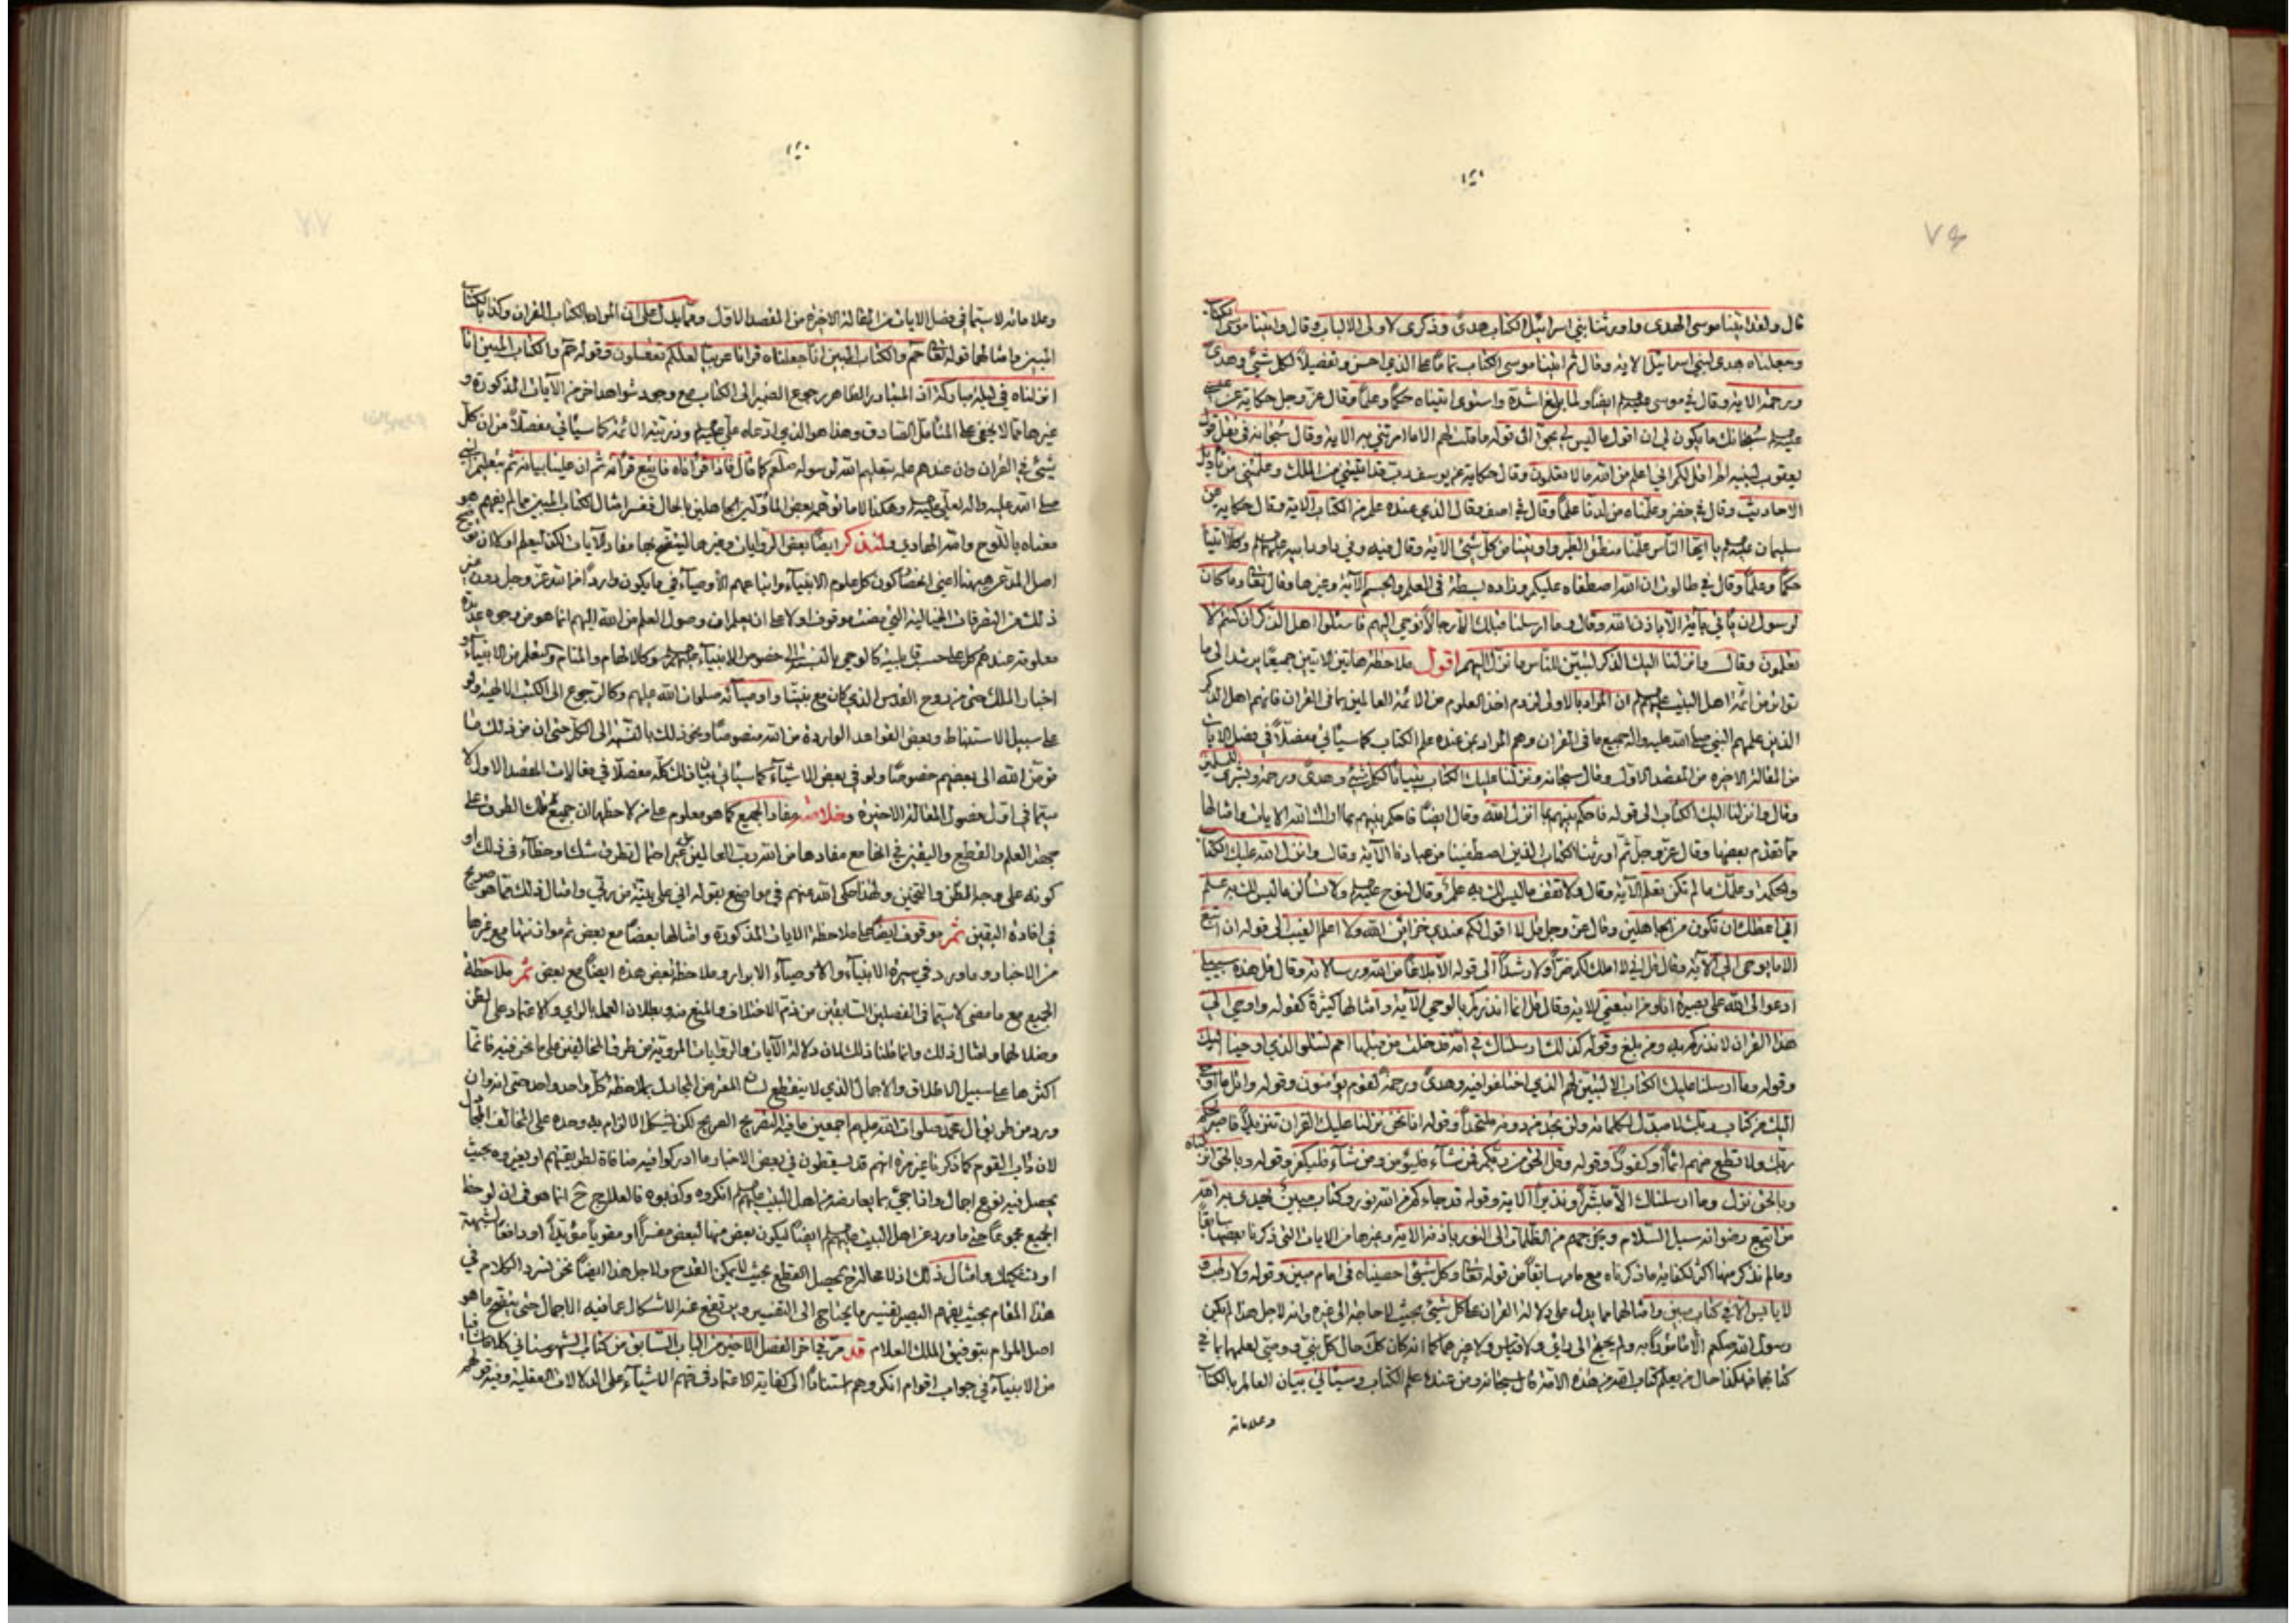 ٧٩
قال ولقد اتينا موسى الهدى واورثنا بني اسرائيل الكتاب هدىً وذكرى لاولى الالباب وقال واتينا موسى الكتاب
وجعلناه هدى لبني اسرائيل الاية وقال ثم اتينا موسى الكتاب تماما على الذي احسن وتفصيلاً لكل شيئ وهدىً
ورحمة الاية وقال في موسى ايضاً ولما بلغ اشده واستوى اتيناه حكماً وعلماً وقال عز وجل حكاية عن عيسى
سبحانك ما يكون لي ان اقول ما ليس لي بحق الى قوله ما قلت لهم الا ما امرتني به الاية وقال سبحانه في نقل قول
يعقوب لبنيه الم اقل لكم اني اعلم من الله ما لا تعلمون وقال حكاية عن يوسف رب قد اتيتني من الملك وعلمتني من تأويل
الاحاديث وقال في خضر وعلمناه من لدنا علماً وقال في اصف وقال الذي عنده علم من الكتاب الاية وقال حكاية عن
سليمان يا ايها الناس علمنا منطق الطير واوتينا من كل شيئ الاية وقال فيه وفي داود ابيه وكلاً اتينا
حكماً وعلماً وقال في طالوت ان الله اصطفاه عليكم وزاده بسطة في العلم والجسم الآية وغيرها وقال تعالى وما كان
لرسول ان يأتي بآية الا باذن الله وقال وما ارسلنا قبلك الا رجالاً نوحي اليهم فاسئلوا اهل الذكر ان كنتم لا
تعلمون وقال وانزلنا اليك الذكر لتبين للناس ما نزل اليهم اقول ملاحظة هاتين الايتين جميعاً يرشد الى ما
تواتر من ائمة اهل البيت ان المراد بالاولى لزوم اخذ العلوم من الائمة العالمين بما في القران فانهم اهل الذكر
الذين علمهم النبي صلى الله عليه واله جميع ما في القران وهم المراد بمن عنده علم الكتاب كما سيأتي مفصلاً في فصل الايات
من المقالة الاخيرة من المقصد الاول وقال سبحانه ونزلنا عليك الكتاب تبياناً لكل شيئ وهدىً ورحمة وبشرى للمسلمين
وقال وانزلنا اليك الكتاب الى قوله فاحكم بينهم بما انزل الله وقال ايضاً فاحكم بينهم بما اراك الله الايات وامثالها
مما تقدم بعضها وقال عز وجل ثم اورثنا الكتاب الذين اصطفينا من عبادنا الآية وقال وانزل الله عليك الكتاب
والحكمة وعلمك ما لم تكن تعلم الآية وقال ولا تقف ما ليس لك به علم وقال لنوح ولا تسألن ما ليس لك به علم
اني اعظك ان تكون من الجاهلين وقال عز وجل قل لا اقول لكم عندي خزائن الله ولا اعلم الغيب الى قوله ان اتبع
الا ما يوحى الي الآية وقال قل اني لا املك لكم ضراً ولا رشداً الى قوله الا بلاغاً من الله ورسالاته وقال قل هذه سبيلي
ادعوا الى الله على بصيرة انا ومن اتبعني الاية وقال قل انما انذركم بالوحي الآية وامثالها كثيرة كقوله واوحي الي
هذا القران لانذركم به ومن بلغ وقوله كذلك ارسلناك في امة قد خلت من قبلها امم لتتلو الذي اوحينا اليك
وقوله وما ارسلنا عليك الكتاب الا لتبين لهم الذي اختلفوا فيه وهدىً ورحمة لقوم يؤمنون وقوله واتل ما اوحي
اليك من كتاب ربك لا مبدل لكلماته ولن تجد من دونه ملتحداً وقوله انا نحن نزلنا عليك القران تنزيلاً فاصبر لحكم
ربك ولا تطع منهم اثماً او كفوراً وقوله وقل الحق من ربكم فمن شآء فليؤمن ومن شآء فليكفر وقوله وبالحق انزلناه
وبالحق نزل وما ارسلناك الا مبشراً ونذيراً الاية وقوله قد جاءكم من الله نور وكتاب مبين يهدي به الله
من اتبع رضوانه سبل السلام ويخرجهم من الظلمات الى النور باذنه الاية وغيرها من الايات التي ذكرنا بعضها سابقاً
وما لم نذكر منها اكثر لكفاية ما ذكرناه مع ما مر سابقاً من قوله تعالى وكل شيئ احصيناه في امام مبين وقوله ولا رطب و
لا يابس الا في كتاب مبين وامثالهما مما يدل على دلالة القران على كل شيئ بحيث لا حاجة الى غيره وانه لاجل هذا لم يكن
رسول الله صلعم الا مأموراً به ولم يحتج الى رأي ولا قياس ولا غيرهما كما انه كان كذلك حال كل نبي ووصي لعلمها بما في
كتابهما فهكذا حال من يعلم كتاب الله من هذه الامة قال سبحانه ومن عنده علم الكتاب وسيأتي بيان العالم بالكتاب
وعلاماته
وعلاماته لا سيما في فصل الايات من المقالة الاخيرة من المقصد الاول ومما يدل على ان المراد بالكتاب القران وكذا بالكتاب
المبين وامثالهما قوله تعالى حم والكتاب المبين انا جعلناه قرانا عربيا لعلكم تعقلون وقوله حم والكتاب المبين انا
انزلناه في ليلة مباركة اذ المتبادر الظاهر رجوع الضمير الى الكتاب مع وجود شواهد اخر من الآيات المذكورة و
غيرها مما لا يخفى على المتأمل الصادق وهذا هو الذي ادعاه علي وذريته الائمة كما سيأتي مفصلاً من ان كل
شيئ في القران وان عندهم علمه بتعليم الله لرسوله صلعم كما قال فاذا قرأناه فاتبع قرآنه ثم ان علينا بيانه ثم بتعليم النبي
صلى الله عليه واله لعلي وهكذا لا ما توهمه بعض المأولين الجاهلين بالحال ففسر امثال الكتاب المبين ما لم يفهم هو
معناه باللوح والله الهادي ولنذكر ايضاً بعض الروايات وغيرها ليتضح بها مفاد الآيات لكن ليعلم اولا ان توضيح
اصل المدعى هيهنا اعني انحصار كون كل علوم الانبياء واتباعهم الأوصيآء في ما يكون وارداً من الله عز وجل دون غير
ذلك من التفرقات الخيالية التي مضت موقوف اولا على ان يعلم ان وصول العلم من الله اليهم انما هو من وجوه عديدة
معلومة عندهم كل على حسب قابليته كالوحي بالنسبة الى خصوص الانبياء وكالالهام والمنام والتعلم من الانبيآء و
اخبار الملك حتى من روح القدس الذي كان مع نبينا واوصيآئه صلوات الله عليهم وكالرجوع الى الكتب الالهية ولو
على سبيل الاستنباط وبعض القواعد الواردة من الله منصوصاً ونحو ذلك بالنسبة الى الكل حتى ان من ذلك ما
فوض الله الى بعضهم خصوصاً ولو في بعض الاشيآء كما سيأتي بيان ذلك كله مفصلاً في مقالات المقصد الاول لا
سيما في اول فصول المقالة الاخيرة وخلاصة مفاد الجميع كما هو معلوم على من لاحظها ان جميع تلك الطرق على
نهج العلم والقطع واليقين في انها مع مفادها من الله رب العالمين من غير احتمال تطرق شك وخطآء في ذلك او
كونه على وجه الظن والتخمين ولهذا حكى الله عنهم في مواضع بقوله اني على بينة من ربي وامثال ذلك مما هو صريح
في افادة اليقين ثم موقوف ايضاً على ملاحظة الايات المذكورة وامثالها بعضاً مع بعض ثم موازنتها مع غيرها
من الاخبار وما ورد في سيرة الانبيآء والاوصيآء الابرار وملاحظة بعض هذه ايضاً مع بعض ثم ملاحظة
الجميع مع ما مضى لا سيما في الفصلين السابقين من ذم الاختلاف والمنع منه وبطلان العمل بالراي والاعتماد على الظن
وضلالهما وامثال ذلك وانما قلنا ذلك لان دلالة الآيات والروايات المروية من طرق المخالفين على ما نحن فيه فانما
اكثرها على سبيل الاطلاق والاجمال الذي لا ينقطع لسان المغرض المجادل بملاحظة كل واحد واحد حتى انه وان
ورد من طريق آل محمد صلوات الله عليهم اجمعين ما فيه التصريح الصريح لكن يشكل الالزام به وحده على المخالف المجادل
لان داب القوم كما ذكرنا غير مرة انهم قد يسقطون في بعض الاخبار ما ادركوا فيه منافاة لطريقتهم او يغيروه بحيث
يحصل فيه نوع اجمال واذا جيئ بما يعارضه من اهل البيت انكروه وكذبوه فالعلاج ح انما هو في ان لوحظ
الجميع مجموعاً حتى ما ورد عن اهل البيت ايضاً ليكون بعض منها لبعض مفسراً او مقوياً مؤيداً او دافعاً لشبهة
او تشكيك وامثال ذلك اذ لا محالة ح يحصل القطع بحيث لا يمكن القدح ولاجل هذا ايضاً نحن نسرد الكلام في
هذا المقام بحيث يفهم البصير تفسير ما يحتاج الى التفسير ويرتفع عنه الاشكال عما فيه الاجمال حتى يتضح ما هو
اصل المرام بتوفيق الملك العلام قد مر في اخر الفصل الاخير من الباب السابق من كتاب الشهرستاني كلام
من الانبيآء في جواب اقوام انكروهم استناداً الى كفاية الاعتماد في فهم الاشيآء على الدلالات العقلية وفيه قولهم